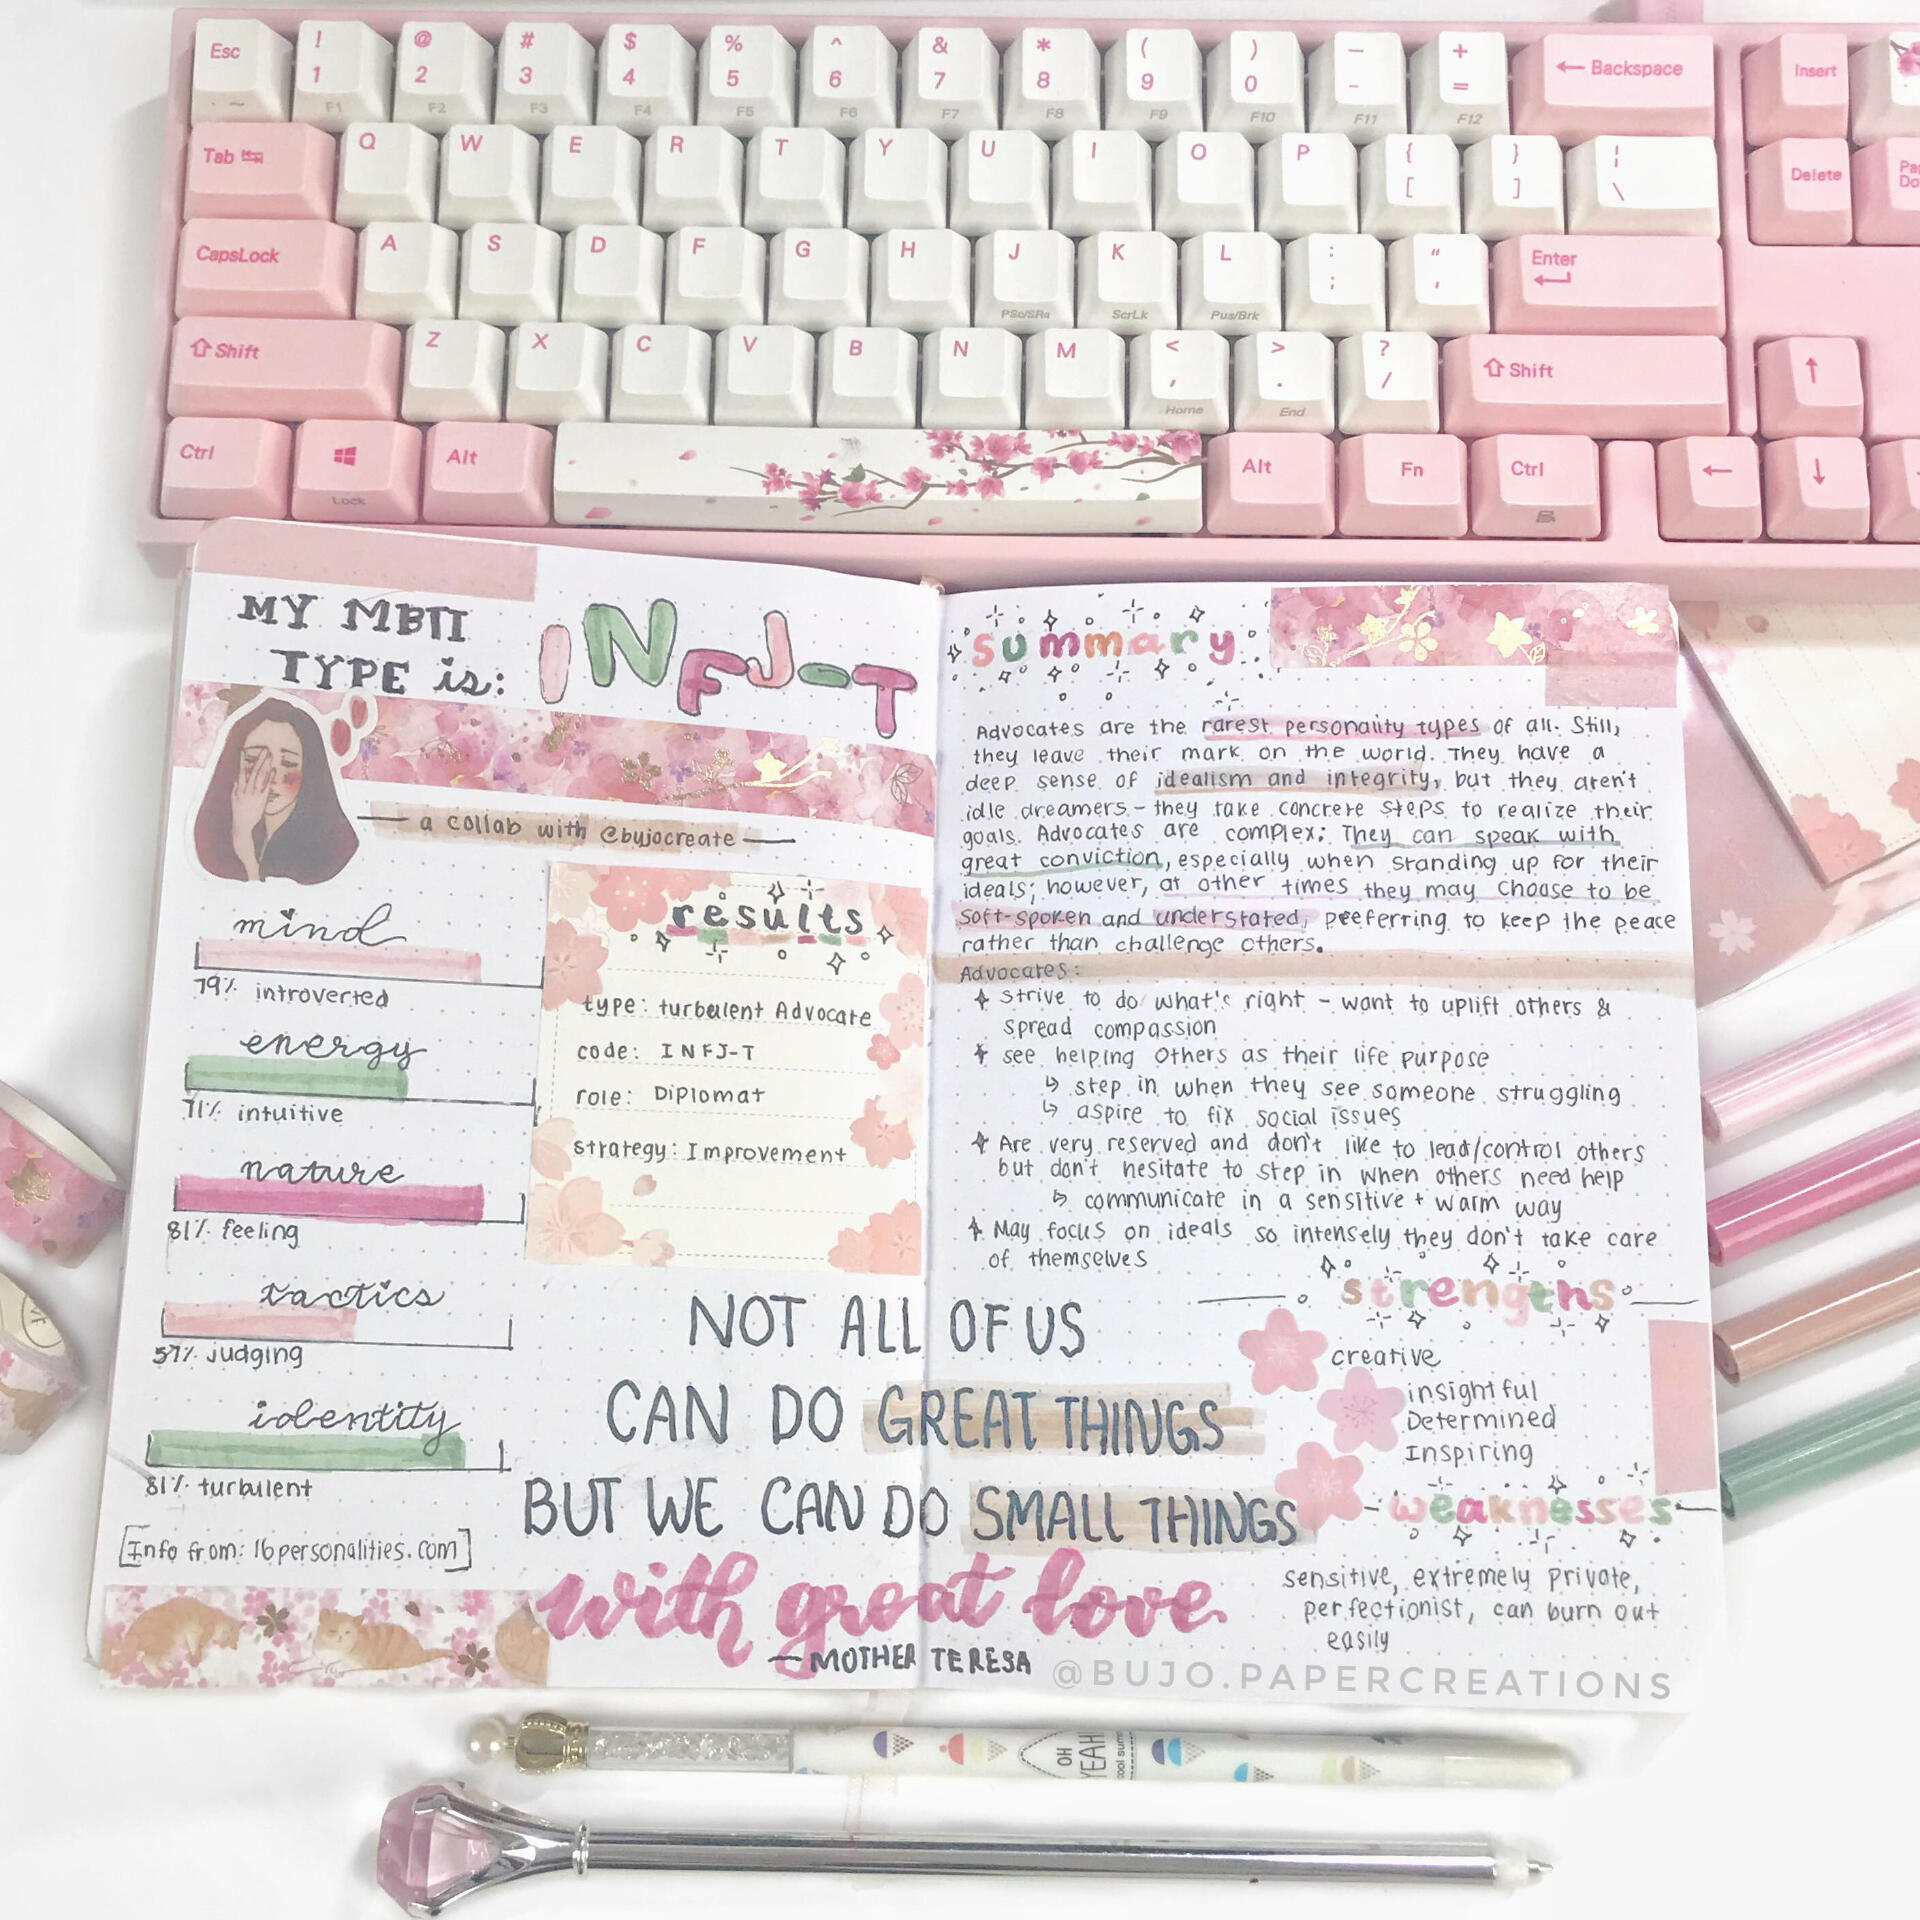 Esc ! 1 @ 2 # 3 $ 4 % 5 ^ 6 & 7 * 8 ( 9 ) 0 — - + = ← Backspace Insert
F1 F2 F3 F4 F5 F6 F7 F8 F9 F10 F11 F12
Tab Q W E R T Y U I O P { [ } ] ¦ \ Delete
CapsLock A S D F G H J K L : ; " ' Enter
PSc/SRq ScrLk Pus/Brk
⇧ Shift Z X C V B N M < , > . ? / ⇧ Shift ↑
Home End
Ctrl Alt Alt Fn Ctrl ← ↓
Lock
MY MBTI
TYPE is:
INFJ-T
a collab with @bujocreate
mind
79% introverted
energy
71% intuitive
nature
81% feeling
tactics
57% judging
identity
81% turbulent
[Info from: 16personalities.com]
results
type: turbulent Advocate
code: INFJ-T
role: Diplomat
strategy: Improvement
summary
Advocates are the rarest personality types of all. Still,
they leave their mark on the world. They have a
deep sense of idealism and integrity, but they aren't
idle dreamers - they take concrete steps to realize their
goals. Advocates are complex: They can speak with
great conviction, especially when standing up for their
ideals; however, at other times they may choose to be
soft-spoken and understated, preferring to keep the peace
rather than challenge others.
Advocates:
strive to do what's right - want to uplift others &
spread compassion
see helping others as their life purpose
↳ step in when they see someone struggling
↳ aspire to fix social issues
Are very reserved and don't like to lead/control others
but don't hesitate to step in when others need help
↳ communicate in a sensitive + warm way
May focus on ideals so intensely they don't take care
of themselves
strengths
creative
insightful
Determined
Inspiring
weaknesses
sensitive, extremely private,
perfectionist, can burn out
easily
NOT ALL OF US
CAN DO GREAT THINGS
BUT WE CAN DO SMALL THINGS
with great love.
— MOTHER TERESA
@BUJO.PAPERCREATIONS
OH
YEAH!